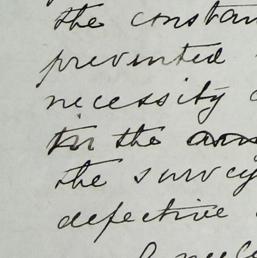 the constan
prevented
necessity
in the
the survey
defective